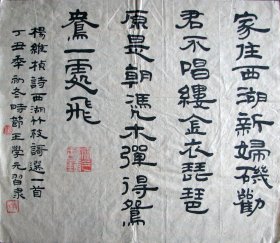 家住西湖新婦磯勸
君不唱縷金衣琵琶
原是朝馮木彈得鴛
鴦一處飛
楊維楨詩西湖竹枝謌選一首
丁丑年初冬時節王學元習隸